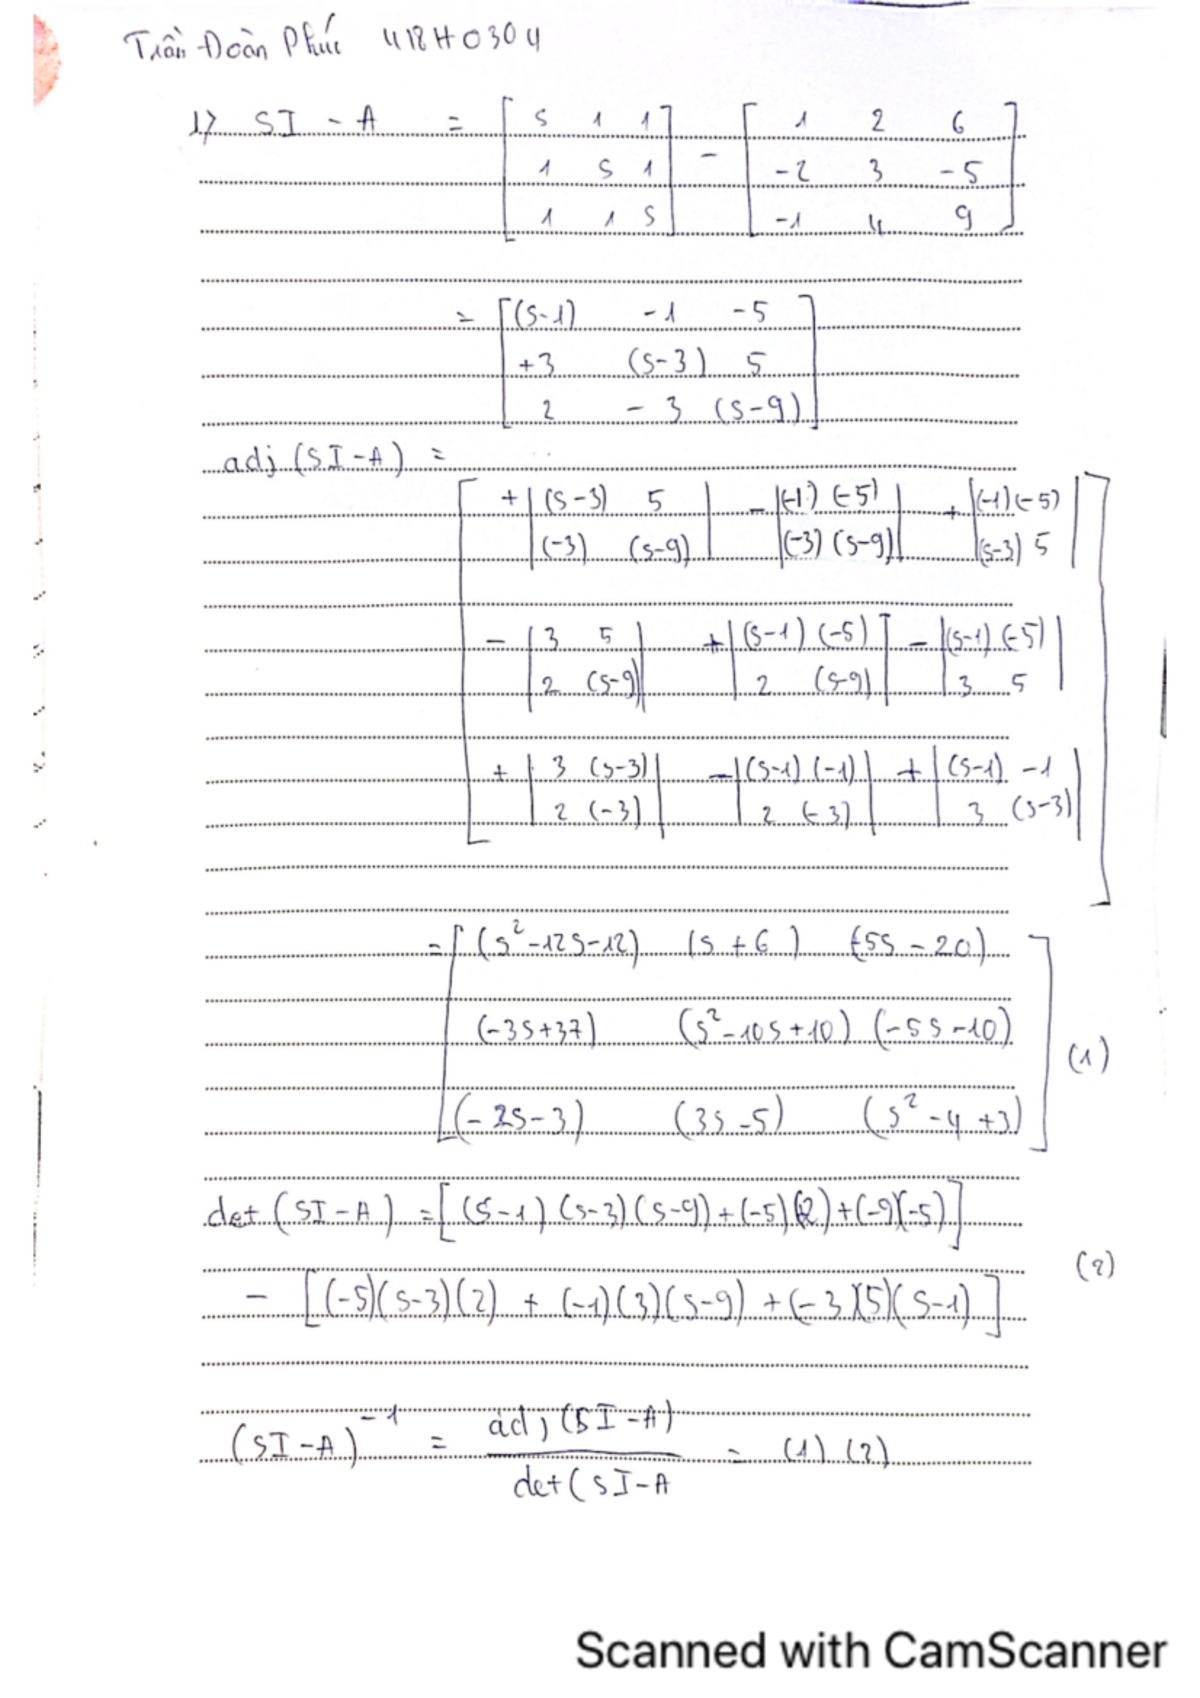 Trần Đoàn Phúc 418H0304
1) SI - A = [ S 1 1 ] - [ 1 2 6 ]
[ 1 S 1 ] [ -2 3 -5 ]
[ 1 1 S ] [ -1 4 9 ]
= [ (S-1) -1 -5 ]
[ +3 (S-3) 5 ]
[ 2 -3 (S-9) ]
adj (SI-A) =
[ + | (S-3) 5 | - | (-1) (-5) | + | (-1) (-5) | ]
| (-3) (S-9) | | (-3) (S-9) | | (S-3) 5 |
- | 3 5 | + | (S-1) (-5) | - | (S-1) (-5) |
| 2 (S-9) | | 2 (S-9) | | 3 5 |
+ | 3 (S-3) | - | (S-1) (-1) | + | (S-1) -1 |
| 2 (-3) | | 2 (-3) | | 3 (S-3) |
= [ (S²-12S-12) (S+6) (-5S-20) ]
(-3S+37) (S²-10S+10) (-5S-10) (1)
[ (-2S-3) (3S-5) (S²-4+3) ]
det (SI-A) = [ (S-1) (S-3) (S-9) + (-5) (2) + (-9)(-5) ]
(2)
- [ (-5)(S-3)(2) + (-1)(3)(S-9) + (-3)(5)(S-1) ]
(SI-A)⁻¹ = adj (SI-A) / det (SI-A = (1) (2)
Scanned with CamScanner